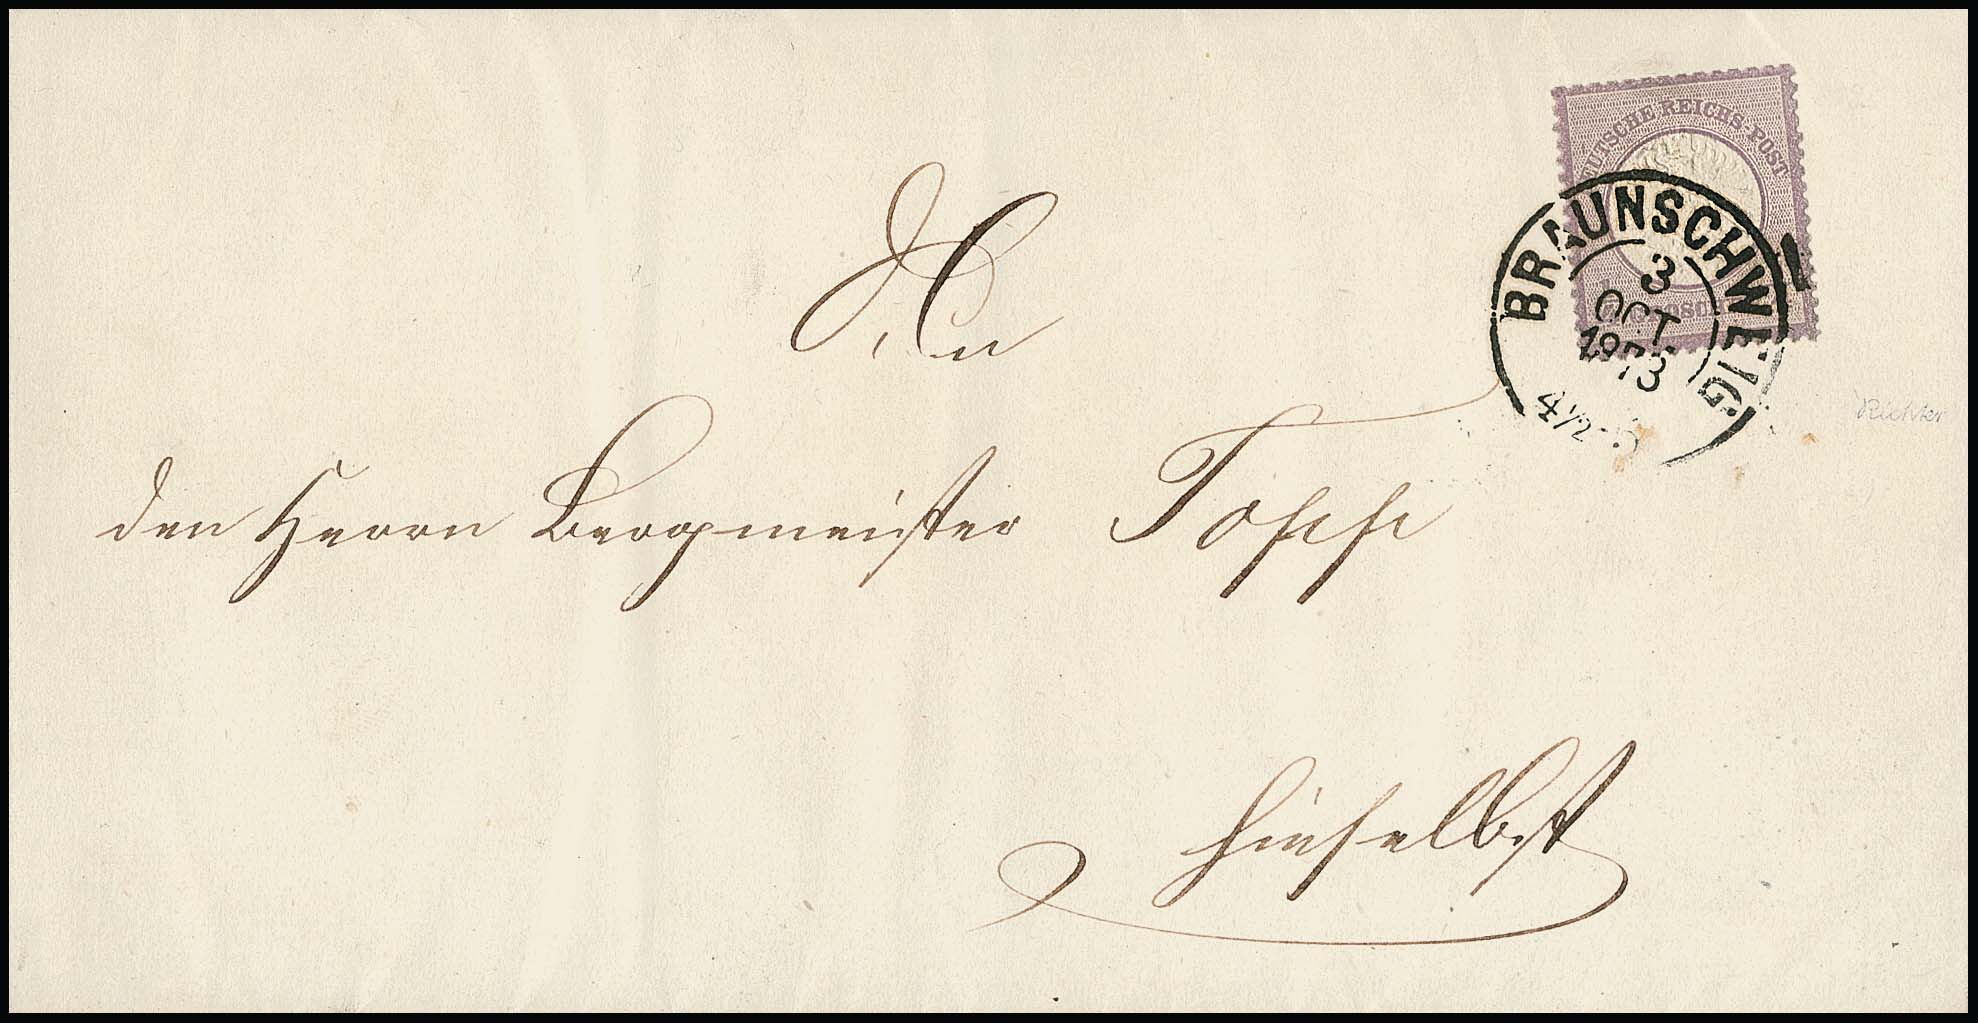 DEUTSCHE REICHS-POST
BRAUNSCHWEIG
3
OCT
1873
4½-5
An
den Herrn Bergmeister Topp
hieselbst
Richter